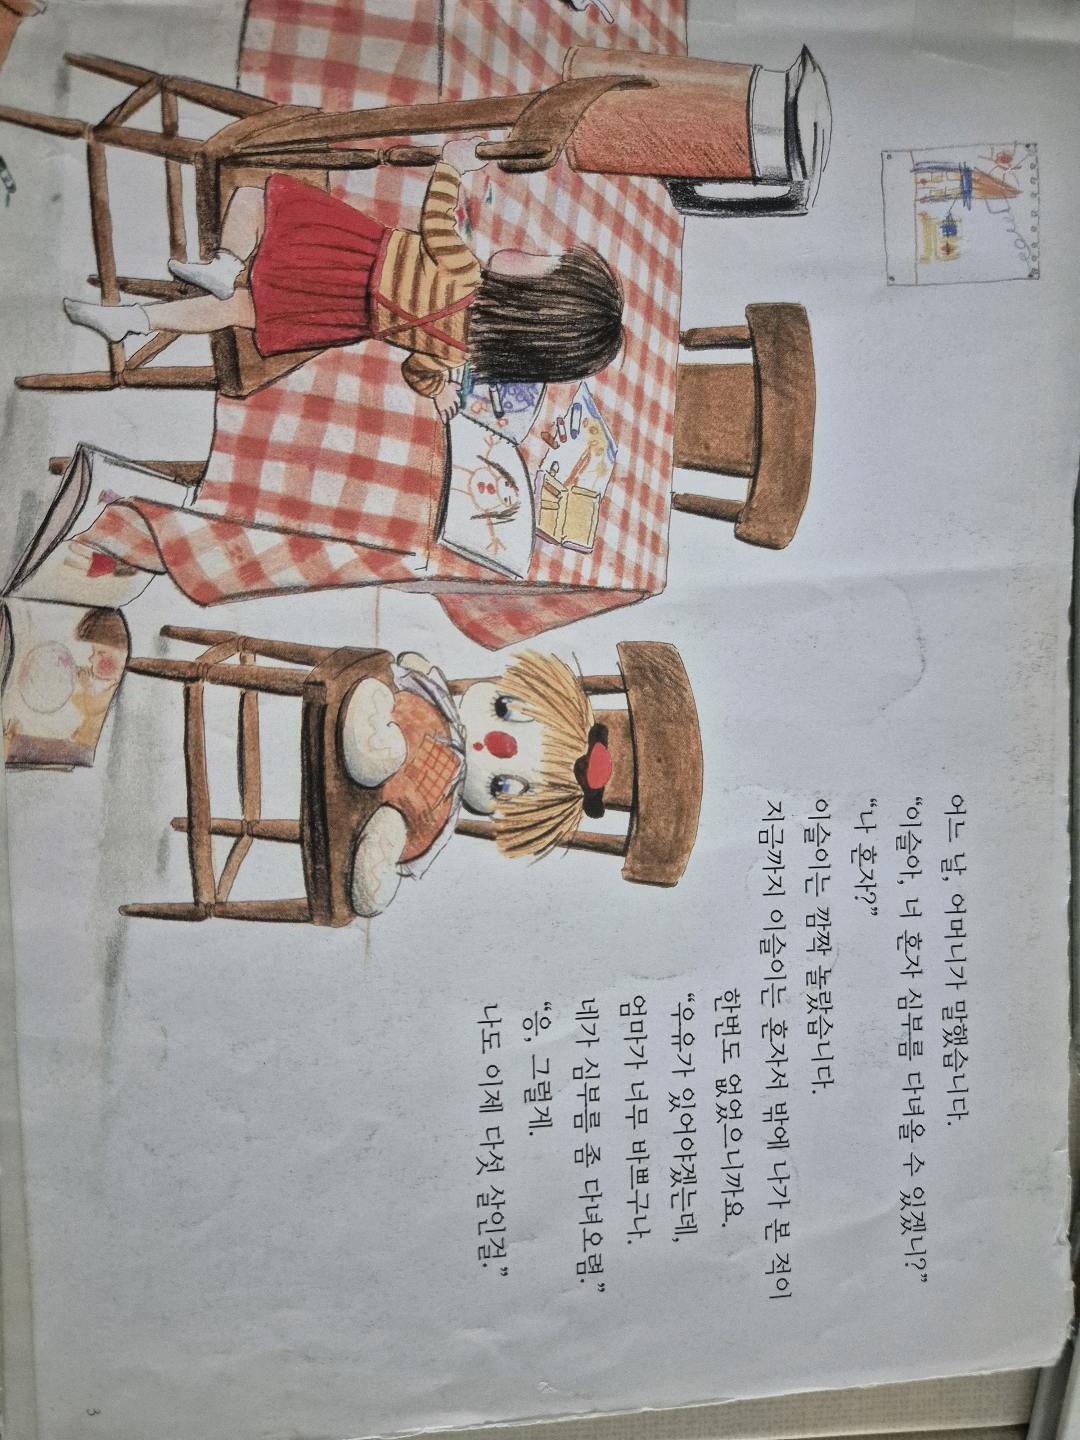 어느 날, 어머니가 말했습니다.
“이슬아, 너 혼자 심부름 다녀올 수 있겠니?”
“나 혼자?”
이슬이는 깜짝 놀랐습니다.
지금까지 이슬이는 혼자서 밖에 나가 본 적이
한번도 없었으니까요.
“우유가 있어야겠는데,
엄마가 너무 바쁘구나.
네가 심부름 좀 다녀오렴.”
“응, 그럴게.
나도 이제 다섯 살인걸.”
3